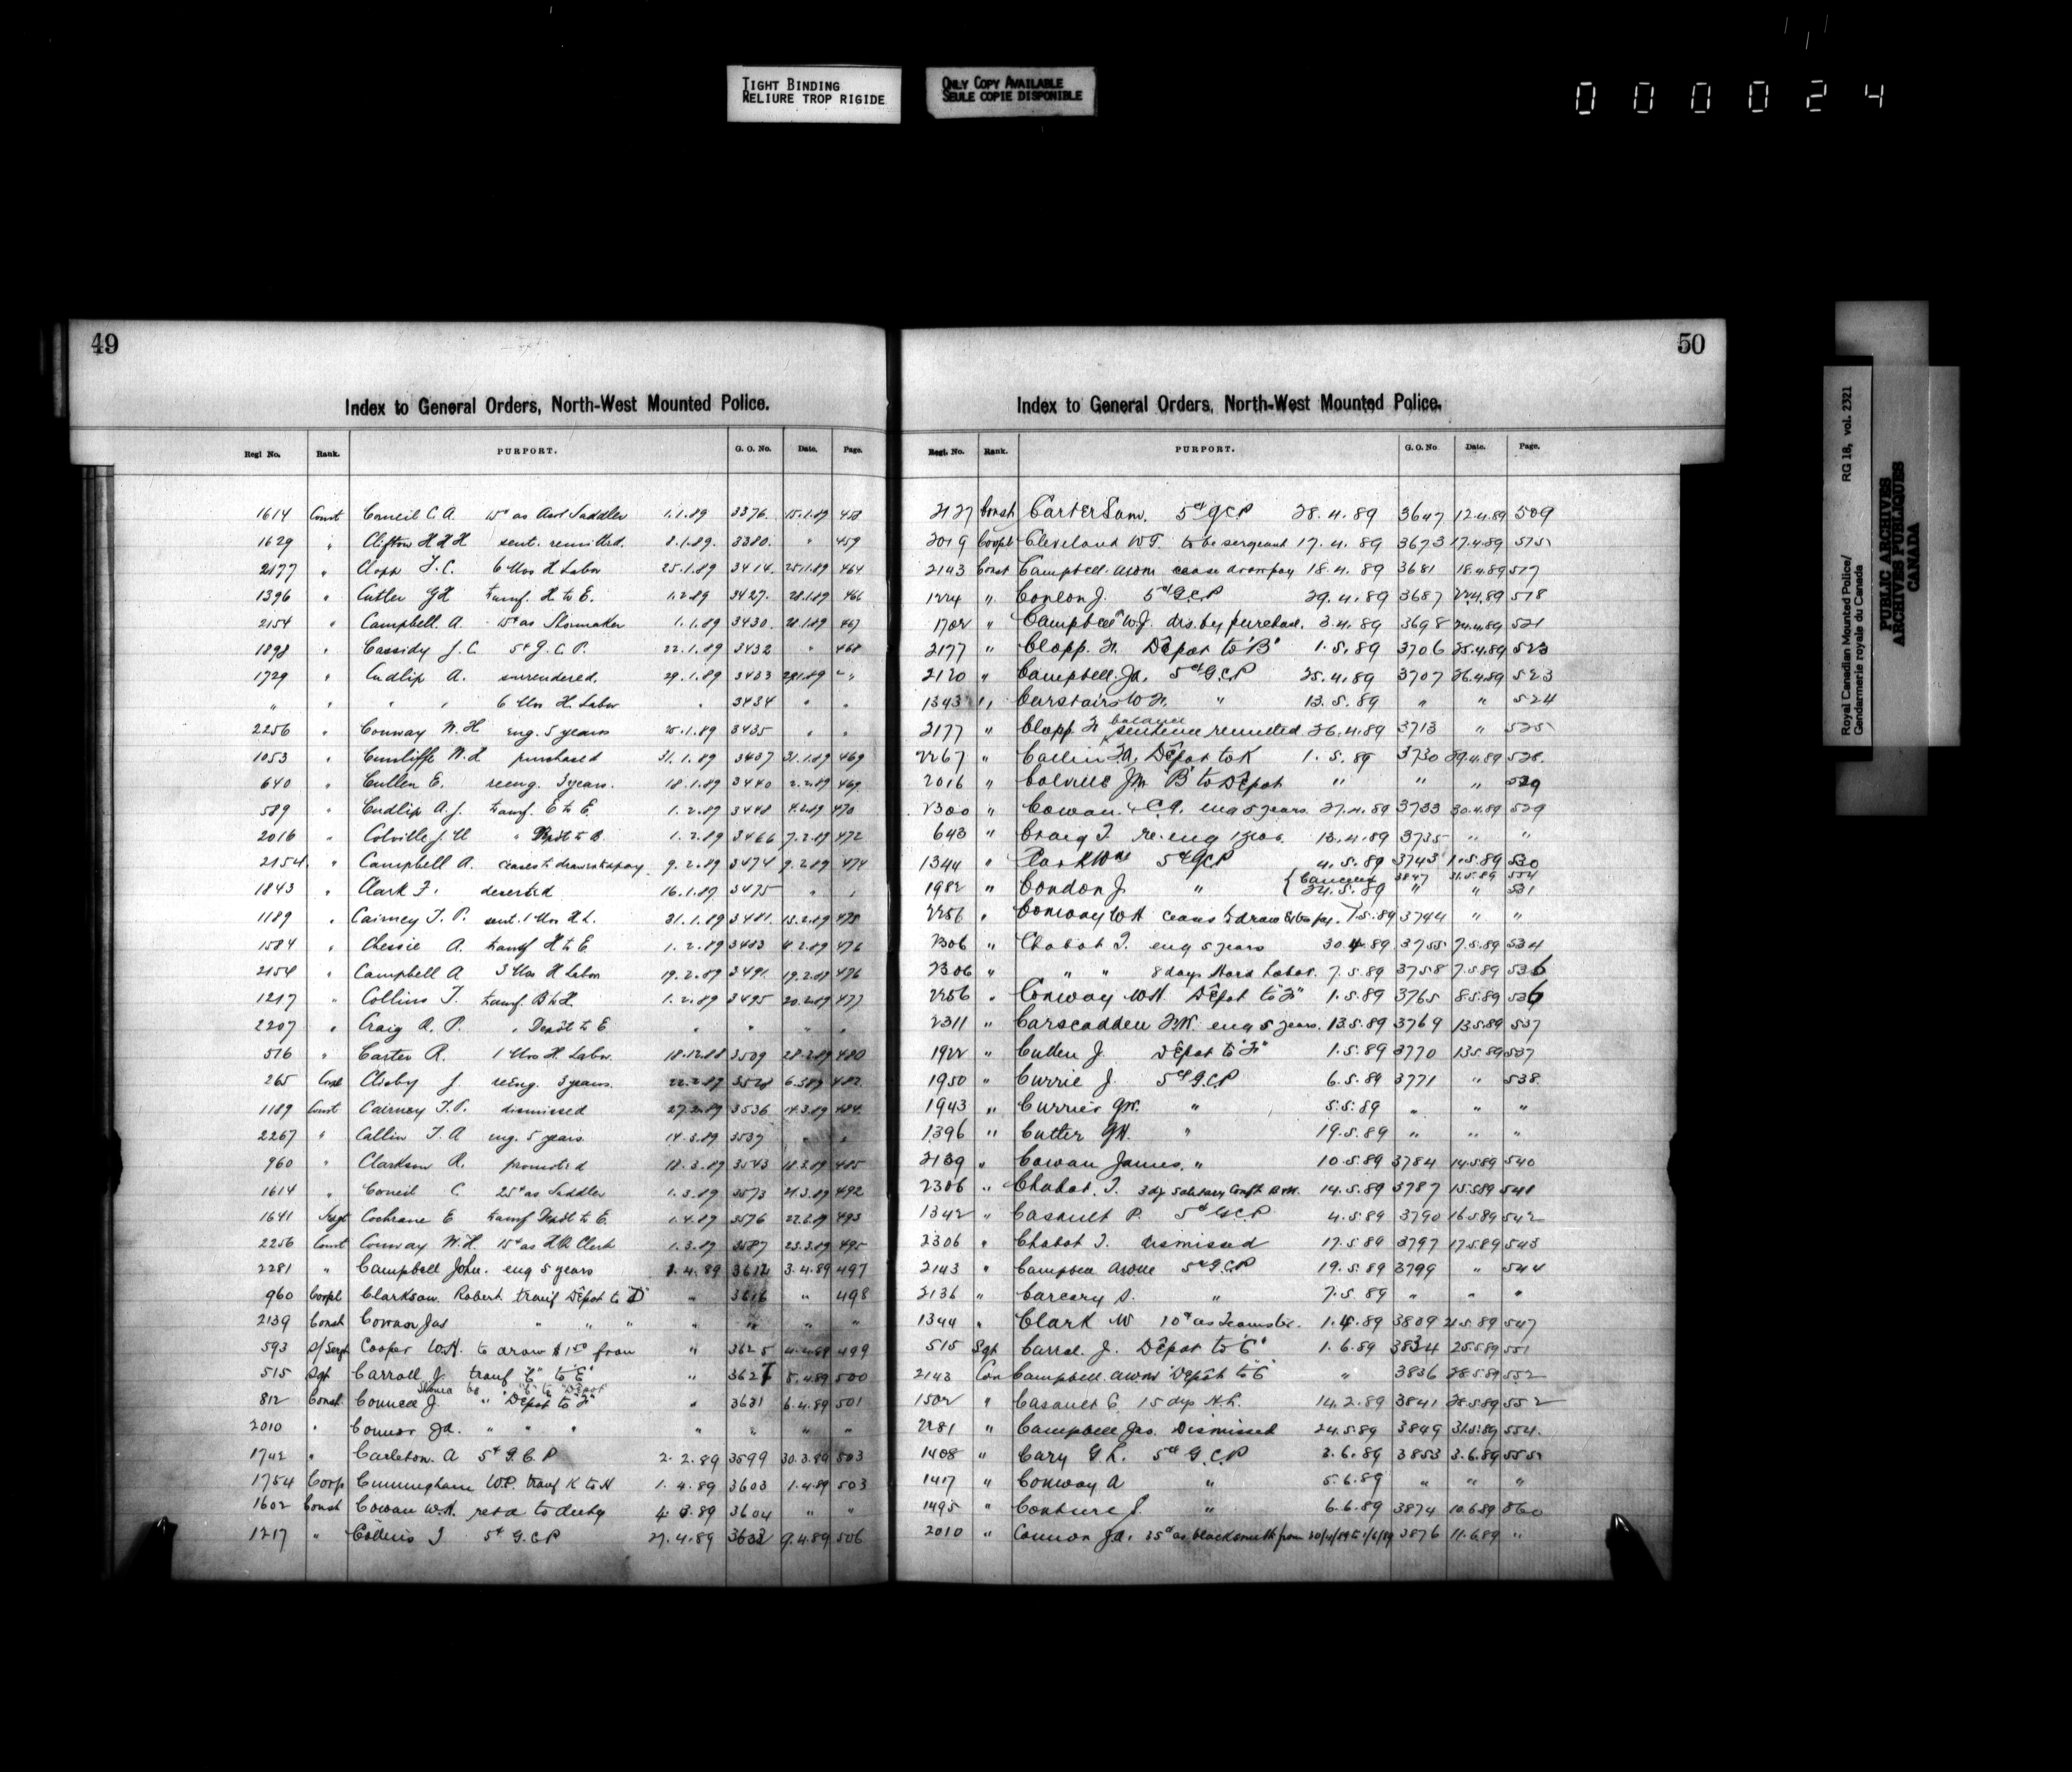 TIGHT BINDING
RELIURE TROP RIGIDE
ONLY COPY AVAILABLE
SEULE COPIE DISPONIBLE
000024
49
Index to General Orders, North-West Mounted Police.
Regl No. Rank. PURPORT. G. O. No. Date. Page.
1614 Const Council C. A. 15¢ as Asst Saddler 1.1.89 3376. 15.1.89 458
1629 " Clifton H H H sent. remitted. 8.1.89. 3380. " 459
2177 " Clapp F. C. 6 Mos H Labor 25.1.89 3414. 25.1.89 464
1396 " Cutter G H transf. H to E. 1.2.89 3427. 28.1.89 466
2154 " Campbell A. 15¢ as Shoemaker 1.1.89 3430. 28.1.89 467
1898 " Cassidy J. C 5¢ G. C. P. 22.1.89 3432 " 468
1729 " Cudlip A. surrendered. 29.1.89 3433 29.1.89 " "
" " " " 6 Mos H. Labor " 3434 " "
2256 " Conway W. H. eng. 5 years 25.1.89 3435 " "
1053 " Cunliffe W. L purchased 31.1.89 3437 31.1.89 469
640 " Cullen E. reeng. 3 years. 18.1.89 3440 2.2.89 469
589 " Cudlip A. J. transf. E to E. 1.2.89 3448 4.2.89 470
2016 " Colville J. M " Depôt to B. 1.2.89 3466 7.2.89 472
2154. " Campbell A. ceases to draw extra pay. 9.2.89 3474 9.2.89 474
1843 " Clark F. deserted 16.1.89 3475 " "
1189 " Cairney T. P. sent. 1 Mos H L. 31.1.89 3481. 13.2.89 475
1584 " Chessie A. transf H to E. 1.2.89 3483 4.2.89 476
2154 " Campbell A 3 Mos H Labor 19.2.89 3491. 19.2.89 476
1217 " Collins T. transf. B to H. 1.2.89 3495 20.2.89 477
2207 " Craig R. P. " Depôt to E. " " " "
516 " Carter R. 1 Mos H. Labor. 18.12.88 3509 28.2.89 480
265 Corpl Clisby J. reeng. 3 years. 22.2.89 3528 6.3.89 482
1189 Const Cairney T. P. dismissed 27.2.89 3536 14.3.89 484
2267 " Callin T. A eng. 5 years. 14.3.89 3537 " "
960 " Clarkson R. promoted 18.3.89 3543 18.3.89 485
1614 " Council C. 25¢ as Saddler 1.3.89 3573 21.3.89 492
1641 Sergt Cochrane E transf Depôt to E. 1.4.89 3576 22.3.89 493
2256 Const Conway W. H. 15¢ as H Q Clerk 1.3.89 3587 23.3.89 495
2281 " Campbell John. eng 5 years 1.4.89 3612 3.4.89 497
960 Corpl Clarkson Robert transf Depot to "D" " 3616 " 498
2139 Const Cowan Jas " " " " " " "
593 S/Sergt Cooper W.H. to draw $1.50 from " 3625 4.4.89 499
515 Sgt Carroll J. transf "E" to "E" " 3627 5.4.89 500
Should be "E" to "Depot"
812 Const Connell J. " Depot to "F" " 3631 6.4.89 501
2010 " Connor Ja. " " " " " " "
1742 " Carleton. A 5¢ G. C. P 2.2.89 3599 30.3.89 503
1754 Corp Cunningham W.P. transf K to H 1.4.89 3603 1.4.89 503
1602 Const Cowan W.H. retd to duty 4.3.89 3604 " "
1217 " Collins T 5¢ G.C.P 27.4.89 3633 9.4.89 506
50
Index to General Orders, North-West Mounted Police.
Regl. No. Rank. PURPORT. G. O. No Date. Page.
2127 Const Carter Sam. 5¢ G.C.P 28.4.89 3647 12.4.89 509
2019 Corpl Cleveland W.F. to be sergeant 17.4.89 3673 17.4.89 515
2143 Const Campbell. cease draw pay 18.4.89 3681 18.4.89 517
1224 " Conlon J. 5¢ G.C.P 29.4.89 3687 22.4.89 518
1702 " Campbell W.J. dis. by purchase. 3.4.89 3698 24.4.89 521
2177 " Clapp. F. Depot to "B" 1.5.89 3706 25.4.89 523
2120 " Campbell. Ja. 5¢ G.C.P 25.4.89 3707 26.4.89 523
1343 " Carstairs W. F. " 13.5.89 " " 524
2177 " Clapp F. balance sentence remitted 26.4.89 3713 " 525
2267 " Callin F.A. Depot to K 1.5.89 3730 29.4.89 528.
2016 " Colville J.M. "B" to Depot " " " 529
2300 " Cowan. C.A. eng 5 years. 27.4.89 3733 30.4.89 529
643 " Craig T. re.eng 1 year. 13.4.89 3735 " "
1344 " Clark Wm 5¢ G.C.P 4.5.89 3743 1.5.89 530
1982 " Condon J. " { Cancelled 3847 31.5.89 554
24.5.89 " " 531
2256 " Conway W H ceases to draw extra pay. 1.5.89 3744 " "
2306 " Chabot T. eng 5 years 30.4.89 3755 7.5.89 534
2306 " " " 8 days Hard Labor. 7.5.89 3758 7.5.89 536
2256 " Conway W.H. Depot to "F" 1.5.89 3765 8.5.89 536
2311 " Carscadden eng 5 years. 13.5.89 3769 13.5.89 537
1922 " Cullen J. Depot to "F" 1.5.89 3770 13.5.89 537
1950 " Currie J. 5¢ G.C.P 6.5.89 3771 " 538.
1943 " Currier G.W. " 5.5.89 " " "
1396 " Cutter G.H. " 19.5.89 " " "
2139 " Cowan James. " 10.5.89 3784 14.5.89 540
2306 " Chabot. T. 3 dy Solitary Conft B.W. 14.5.89 3787 15.5.89 541
1342 " Casault P. 5¢ G.C.P 4.5.89 3790 16.5.89 542
2306 " Chabot T. dismissed 17.5.89 3797 17.5.89 543
2143 " Campbell 5¢ G.C.P 19.5.89 3799 " 544
2136 " Carcary S. " 7.5.89 " " "
1344 " Clark W 10¢ as Teamster. 1.4.89 3809 21.5.89 547
515 Sgt Carrol. J. Depot to "E" 1.6.89 3834 25.5.89 551
2143 Con Campbell. Depot to "E" " 3836 28.5.89 552
1502 " Casault C. 15 dys H.L. 14.2.89 3841 28.5.89 552
2281 " Campbell Jas. Dismissed 24.5.89 3849 31.5.89 554.
1408 " Cary G.L. 5¢ G.C.P 3.6.89 3853 3.6.89 555
1417 " Conway A " 5.6.89 " " "
1495 " Couture J. " 6.6.89 3874 10.6.89 560
2010 " Connor Ja. 25¢ as blacksmith from 20/4/89 to 1/6/89 3876 11.6.89 "
Royal Canadian Mounted Police/ RG 18, vol. 2321
Gendarmerie royale du Canada
PUBLIC ARCHIVES
ARCHIVES PUBLIQUES
CANADA